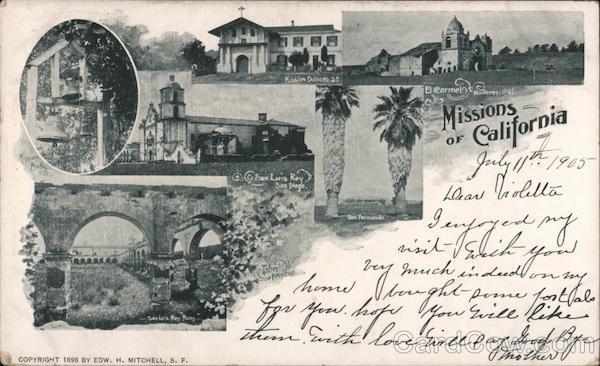 Mission Dolores S.F.
El Carmel
Monterey, Cal.
Missions
of California
San Luis Rey
San Diego
San Fernando
San Luis Rey Ruins
July 11th 1905
Dear Violetta
I enjoyed my
visit with you
very much indeed on my
home bought some postals
for you. hope you will like
them. With love will say Good Bye
Mother
COPYRIGHT 1898 BY EDW. H. MITCHELL, S. F.
CardCow.com